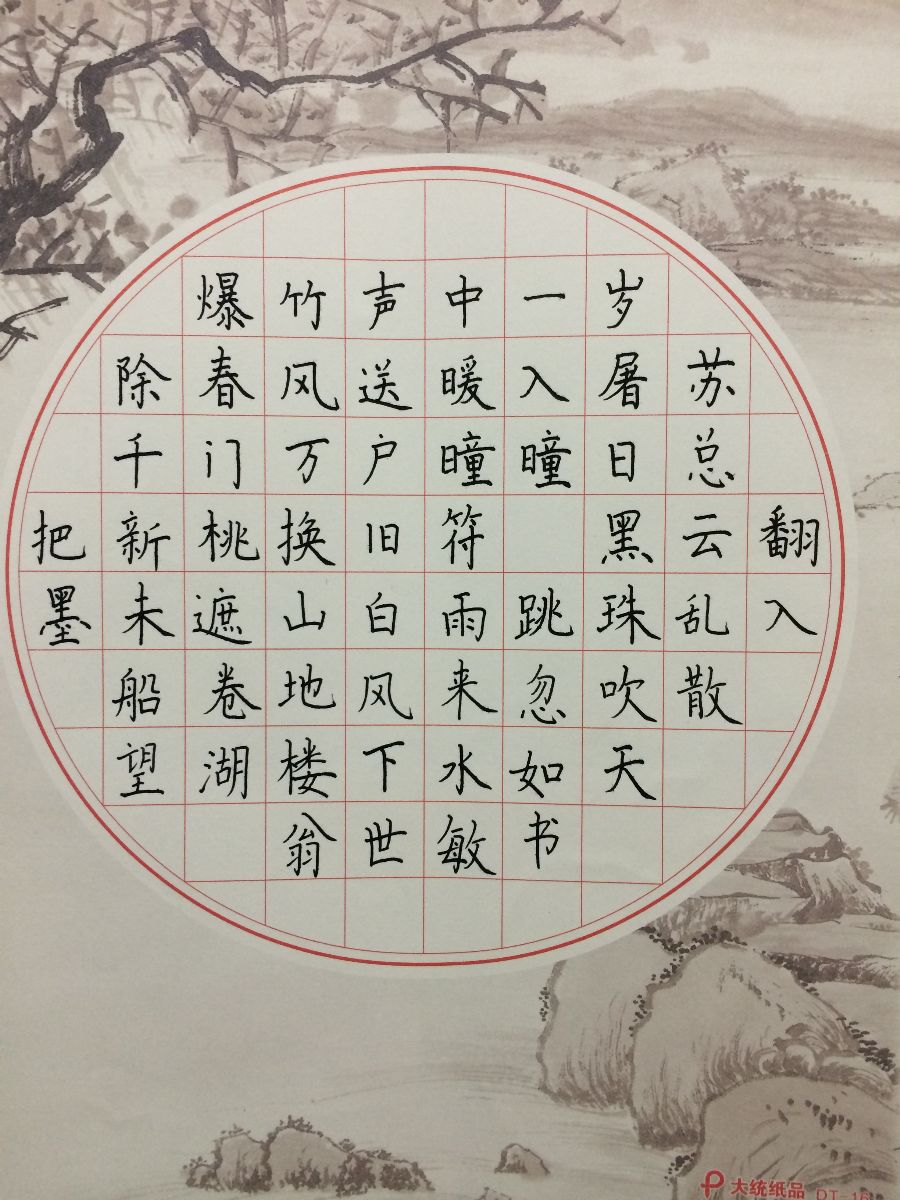 爆竹声中一岁
除春风送暖入屠苏
千门万户曈曈日总
把新桃换旧符 黑云翻
墨未遮山白雨跳珠乱入
船卷地风来忽吹散
望湖楼下水如天
翁世敏书
大统纸品 DT-16